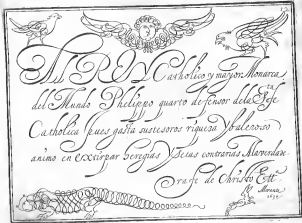 Al REY Catholico y mayor Monarca
del Mundo Phelippo quarto defensor dela S.ta fe
Catholica Pues gasta sustesoros riqueza Ybaleroso
animo en extirpar heregias Ysetas contrarias Alaverdade
ra fe de Christo Ett.
Morante